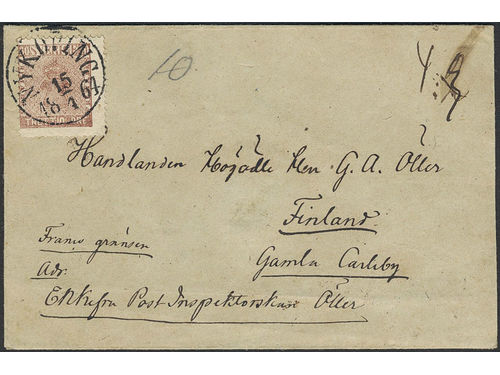 NYKÖPING
15
18 1 64
TRETTIO ÖRE
10
4
Handlanden Högädle Herr G. A. Öller
Finland
Gamla Carleby
Franco gränsen
Adr.
Enkefru Post Inspektorskan Öller